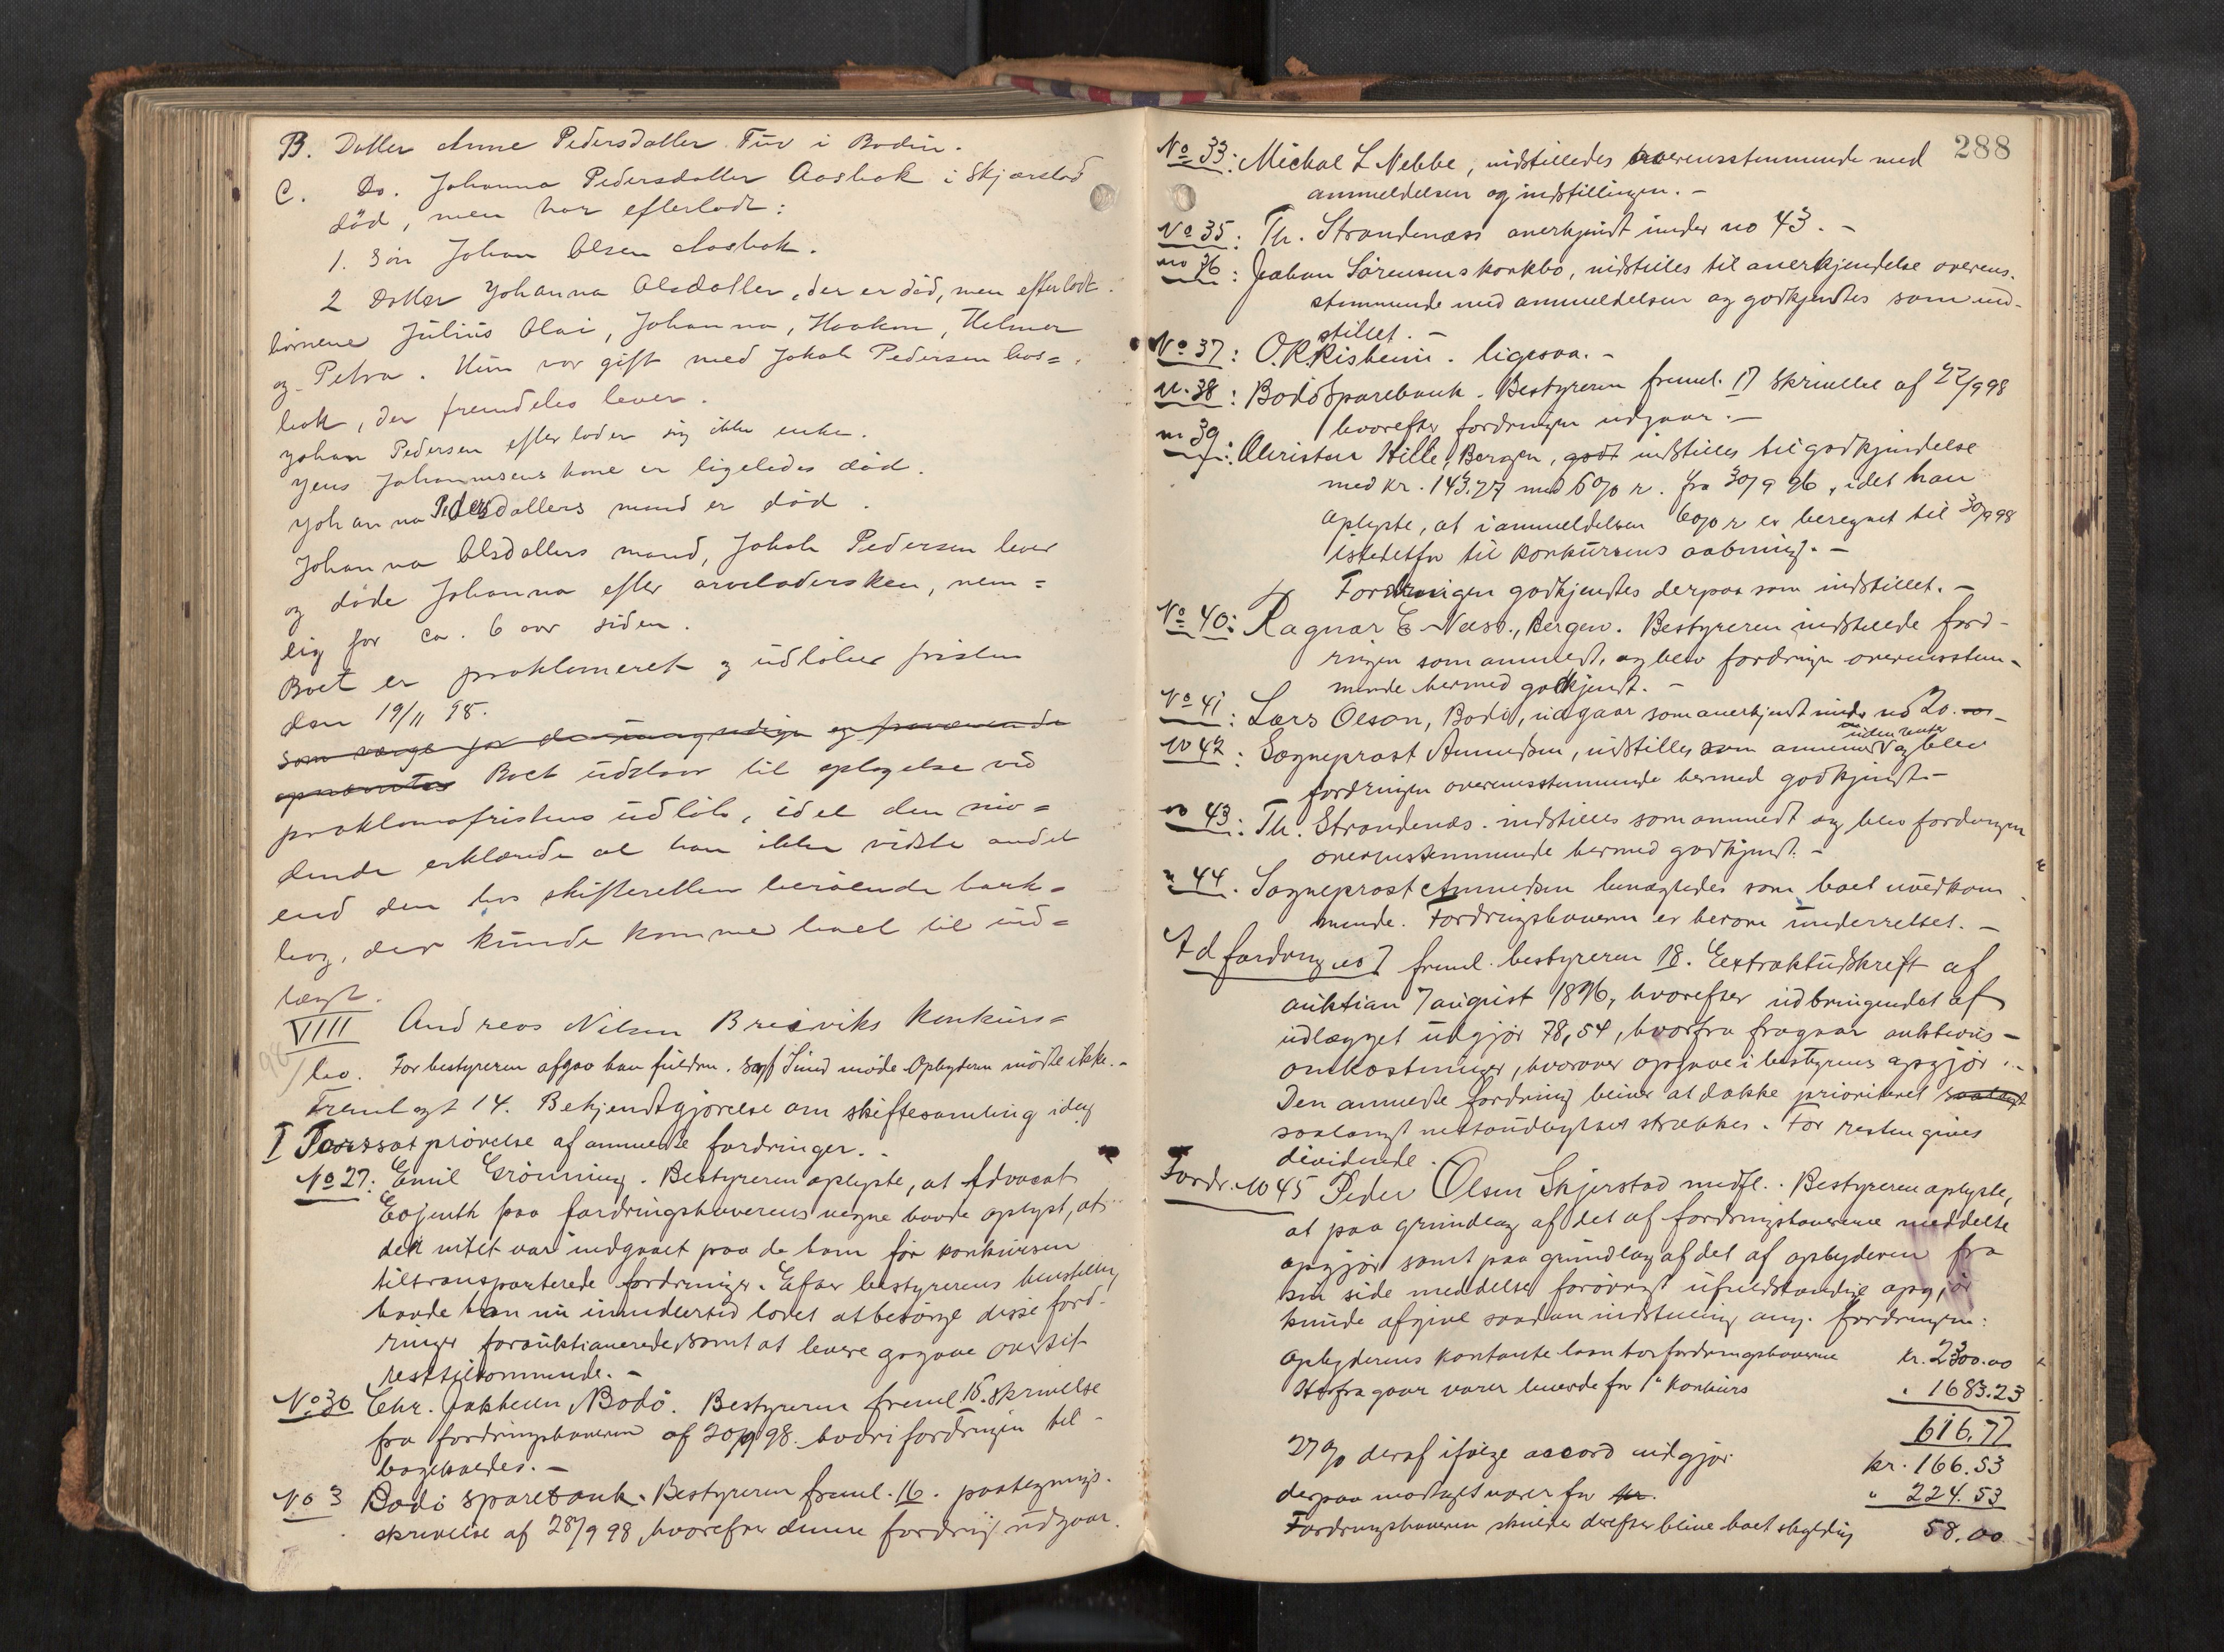 B. Datter Anne Pedersdatter Tuv i Bodin.
C. Do. Johanna Pedersdatter Aasbak i Skjærstad
død, men har efterladt:
1. Søn Johan Olsen Aasbak.
2 Datter Johanna Olsdatter, der er død, men efterlodt
børnene Julius Olai, Johanna, Haakon, Helmer
og Petra. Hun var gift med Jakob Pedersen Aas=
bak, der fremdeles lever.
Johan Pedersen efterlader sig ikke enke.
Jens Johannesens kone er ligeledes død.
Johanna Pedersdatters mand er død.
Johanna Olsdatters mand, Jakob Pedersen lever
og døde Johanna efter arveladersken, nem=
lig for ca. 6 aar siden.
Boet er proklameret og udløber fristen
den 19/11 98.
Som værge for de umyndige og fraværende
opnævntes Boet udstaar til optagelse ved
proklamafristens udløb, idet den mø=
dende erklærede at han ikke vidste andet
end den hos skifteretten beroende bank=
bog, der kunde komme boet til ind=
tægt.
VIII Andreas Nilsen Breiviks konkurs=
bo. For bestyreren afgav han fuldm. Sagf Lund møde Opbyderen mødte ikke. -
Fremlagt 14. Bekjendtgjørelse om skiftesamling idag
I Fortsat prøvelse af anmeldte fordringer. -
No 27: Emil Grønning. Bestyreren oplyste, at Advocat
paa fordringshaverens vegne havde oplyst, at
der intet var indgaaet paa de ham før konkursen
tiltransporterede fordringer. Efter bestyrerens henstilling
havde han nu imidlertid lovet at besørge disse ford-
ringer forauktionerede samt at levere opgave over sit
resttilkommende. -
No 30 Chr. Jakhelln Bodø. Bestyreren freml 15. skrivelse
fra fordringshaveren af 20/9 98. hvori fordringen til-
bageholdes. -
No 3 Bodø sparebank. Bestyreren freml. 16. paategnings-
skrivelse af 28/9 98, hvorefter denne fordring udgaar.
288
No 33: Michal L Nebbe, indstilledes overensstemmende med
anmeldelsen og indstillingen. -
No 35: Th. Strandenæss anerkjendt under no 43. -
no 36: Jakob Sørensens konkbo, indstilles til anerkjendelse overens-
stemmende med anmeldelsen og godkjendtes som ind-
stillet. -
No 37: O. R. Risheim. ligesaa. -
n. 38: Bodø Sparebank. Bestyreren freml. 17 skrivelse af 27/9 98
hvorefter fordringen udgaar. -
n 39: Christen Hille, Bergen, godt indstilles til godkjendelse
med kr. 143.77 med 6 o/o r. fra 30/9 96, idet han
oplyste, at i anmeldelsen 6 o/o r er beregnet til 30/9 98
istedetfor til konkursens aabning. -
Fordringen godkjendtes derpaa som indstillet. -
No 40: Ragnar E Næss., Bergen. Bestyreren indstillede ford-
ringen som anmeldt, og blev fordringen overensstem-
mende hermed godkjendt. -
No 41: Lars Olsen, Bodø, udgaar som anerkjendt under no 20. -
uden rente
No 42: Sogneprost Amundsen, indstilles som anmeldt og blev
fordringen overensstemmende hermed godkjendt. -
no 43: Th. Strandenæs. indstilles som anmeldt og blev fordringen
overensstemmende hermed godkjendt. -
n 44. Sogneprost Amundsen benægtedes som boet uvedkom
mende. Fordringshaveren er herom underrettet. -
Ad fordring no 7 freml. bestyreren 18. Extraktudskrift af
auktion 7 august 1896, hvorefter udbringendet af
udlægget udgjør 78,54, hvorfra fragaar auktions-
omkostninger, hvorover opgave i bestyrerens opgjør. -
Den anmeldte fordring bliver at dække prioriteret saalangt
saalangt nettoudbyttet strækker. For resten gives
dividende.
Fordr. no 45 Peder Olsen Skjerstad medfl. Bestyreren oplyste,
at paa grundlag af det af fordringshaverene meddelte
opgjør samt paa grundlag af det af opbyderen fra
sin side meddelte forøvrigt ufuldstændige opgjør
kunde afgive saadan indstilling ang. fordringen:
Opbyderens kontante laan hos fordringshaverne kr. 2300.00
Herfra gaar varer leverede før 1' konkurs " 1683.23
616.77
27 o/o deraf ifølge accord udgjør kr. 166.53
derpaa modtaget varer for kr. " 224.53
Fordringshaveren skulde derefter blive boet skyldig 58.00